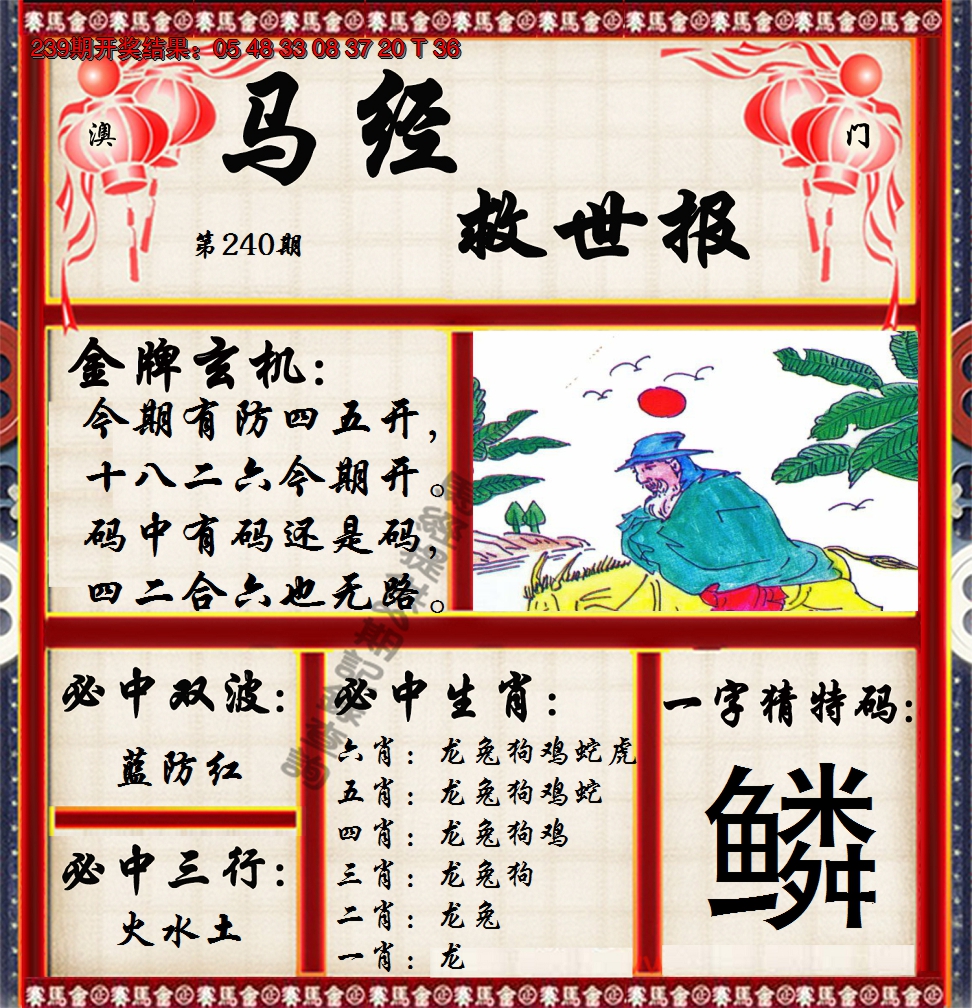 239期开奖结果：05 48 33 08 37 20 T 36
澳
门
马经
救世报
第240期
金牌玄机：
今期有防四五开，
十八二六今期开。
码中有码还是码，
四二合六也无路。
必中双波：
蓝防红
必中三行：
火水土
必中生肖：
六肖：龙兔狗鸡蛇虎
五肖：龙兔狗鸡蛇
四肖：龙兔狗鸡
三肖：龙兔狗
二肖：龙兔
一肖：龙
一字猜特码：
鳞